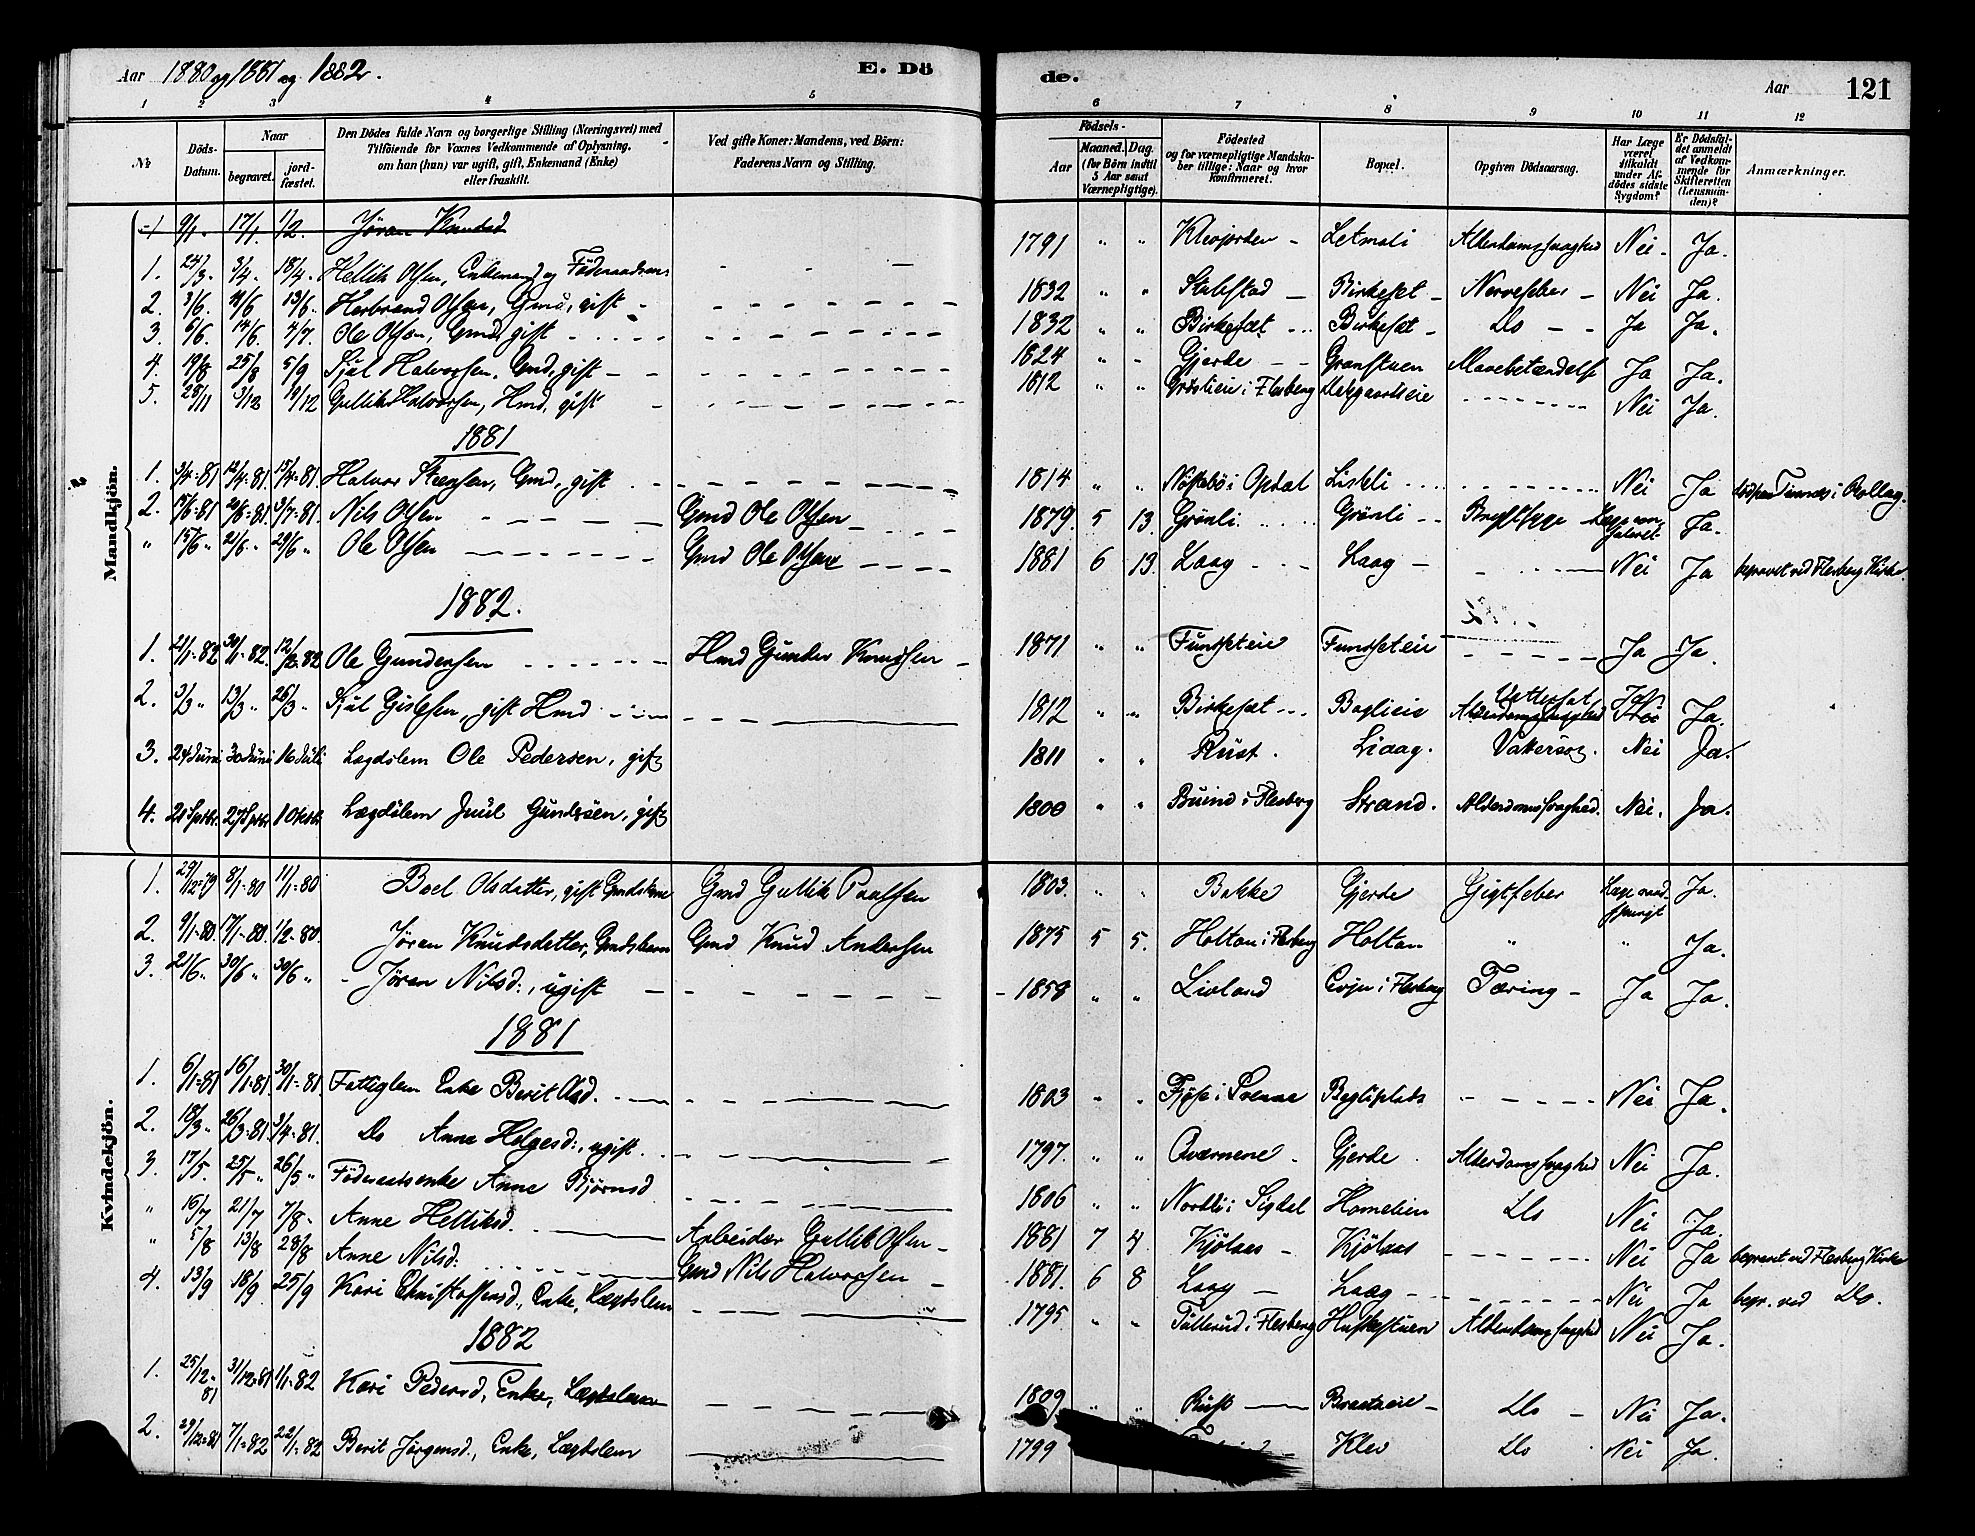 Aar 1880 og 1881 og 1882. E. Dö de. Aar 121
1 2 3 4 5 6 7 8 9 10 11 12
No
Döds-Datum.
Naar
begravet.
jord-fæstet.
Den Dödes fulde Navn og borgerlige Stilling (Næringsvei) med
Tilföiende for Voxnes Vedkommende af Oplysning,
om han (hun) var ugift, gift, Enkemand (Enke)
eller fraskilt.
Ved gifte Koner: Mandens, ved Börn:
Faderens Navn og Stilling.
Födsels-
Aar
Maaned. Dag.
(for Börn indtil
5 Aar samt
Værnepligtige).
Födested
og for værnepligtige Mandska-
ber tillige: Naar og hvor
konfirmeret.
Bopæl.
Opgiven Dödsaarsag.
Har Læge
været
tilkaldt
under Af-
dödes sidste
Sygdom?
Er Dödsfal-
det anmeldt
af Vedkom-
mende for
Skifteretten
(Lensman-
den)?
Anmærkninger.
Mandkjön.
1 9/1. 17/1. 1/2. Jöran Knudsd
1. 24/3. 3/4. 18/4. Hellik Olsen, Enkemand og Föderaadsm 1791 " " Klevjorden Letmoli Alderdomssvaghed Nei. Ja.
2. 3/6. 11/6 13/6. Herbrand Olsen, Gmd, gift 1832 " " Stubstad Birkeset Nervefeber Nei Ja.
3. 6/6. 14/6. 4/7. Ole Olsen, Gmd, gift 1832 " " Birkesæt Birkesæt Do Ja Ja.
4. 19/8 25/8 5/9 Sjul Halvorsen, Gmd, gift 1824 " " Gjerde Granstuen Mavebetændelse Ja Ja.
5. 28/11 3/12 19/12 Gullik Halvorsen, Hmd, gift 1812 " " i Flesberg Nei Ja.
1881
1. 3/4-81 12/4-81. 15/4-81. Halvor Steensen, Gmd, gift 1814 " " Nöstebö i Opdal Listeli Nei Ja i Rollag.
2. 15/6-81 20/6-81. 3/7-81. Nils Olsen Gmd Ole Olsen 1879. 5 13. Grönli Grönli Brystsyge Ja.
" 15/6 " 21/6 " 29/6 " Ole Olsen Gmd Ole Olsen 1881 6 13. Laag Laag Nei Ja begravet ved Flesberg Kirke
1882.
1. 21/1-82 30/1-82. 12/2-82 Ole Gundersen Hmd Gunder Knudsen 1871 " " Funseteie Funseteie Ja Ja.
2. 3/3 " 13/3 " 26/3 " Sjul Gislesen, gift Hmd 1812 " " Birkesæt Baglieie Vattersot Alderdomssvaghed Ja Nei Ja.
3. 24 Juni 30 Juni 16 Juli Lægdslem Ole Pedersen, gift 1811 " " Rust. Liaag. Vattersot. Nei Ja.
4. 20 Septbr. 27 Septbr. 1 Oktbr. Lægdslem Juul Gundersen, gift 1800 " " Buind i Flesberg Strand. Alderdomssvaghed. Nei. Ja.
Kvindekjön.
1. 29/12-79 8/1-80 11/1-80 Boel Olsdatter, gift Gmdskone Gmd Gullik Paalsen 1803. " " Bakke Gjerde Gigtfeber Læge raadspurgt Ja.
2. 9/1-80. 17/1-80. 1/2-80. Jöran Knudsdatter, Gmdsbarn Gmd Knud Andersen 1875 5 5. Holtan i Flesberg Holtan " " Ja.
3. 21/6 " 30/6 " 30/6 " Jöran Nilsd:, ugift 1858 " " Livland i Flesberg Tæring Ja Ja.
1881
1. 6/1-81 16/1-81. 30/1-81. Fattiglem Enke Berit Olsd. 1803 " " i Svenne Nei Ja.
2. 18/3 " 26/3-81. 3/4-81. Do Anne Helgesd:, ugift. 1797. " " Qværnene Gjerde Alderdomssvaghed Nei Ja.
3. 17/5. 25/5 " 26/5 " Föderaadsenke Anne Björnsd 1806 " " Nordli i Sigdal Hamelien Do Nei Ja.
" 16/7 21/7 7/8. Anne Helliksd. Arbeider Gullik Olsen 1881 7 4. Kjölaas Kjölaas Nei Ja begravet ved Flesberg Kirke
" 5/8 13/8 28/8 Anne Nilsd: Gmd Nils Halvorsen 1881. 6 8 Laag Laag Nei Ja begr. ved Do.
4. 13/9 18/9. 25/9 Kari Christoffersd, Enke, Lægdslem 1795 " " Tullerud i Flesberg Huskestuen Alderdomssvaghed Nei Ja.
1882
1. 25/12-81 31/12-81 1/1-82 Kari Pedersd, Enke, Lægdslem 1809 " " Rust Do Nei Ja.
2. 29/12-81 7/1-82 22/1-82 Berit Jörgensd., Enke, Lægdslem 1799 Klev Do Nei Ja.